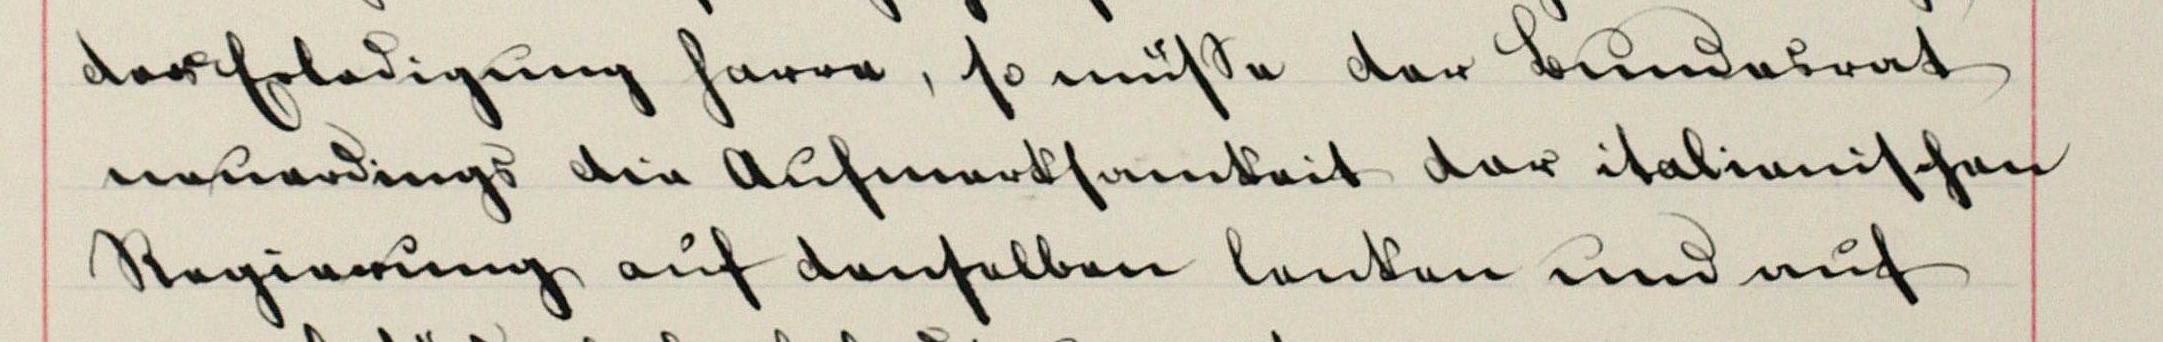 der Erledigung harre, so müsse der Bundesrat
neuerdings die Aufmerksamkeit der italienischen
Regierung auf denselben lenken und auf